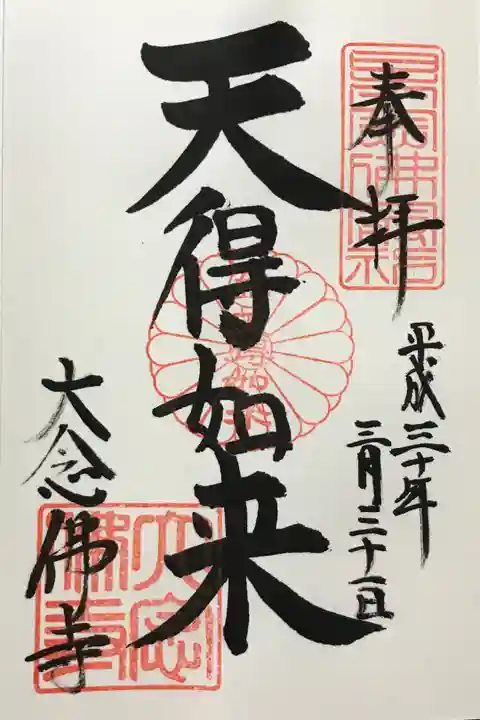 奉拝
平成三十年
三月三十一日
天得如来
大念佛寺
大念佛寺